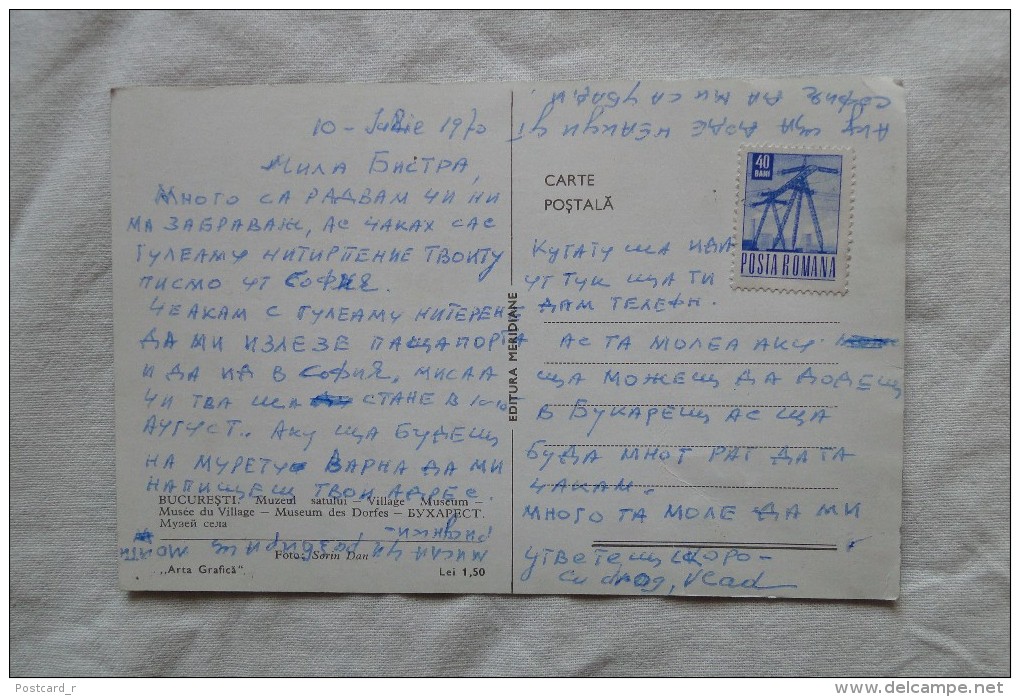 10 - Iulie 1970
МИЛА БИСТРА,
МНОГО СА РАДВАМ ЧИ НИ
МА ЗАБРАВАЖ, АС ЧАКАХ САС
ГУЛЕАМУ НИТИРПЕНИЕ ТВОИТУ
ПИСМО УТ СОФИЯ.
ЧЕАКАМ С ГУЛЕАМУ
ДА МИ ИЗЛЕЗЕ ПАЩАПОРТА
И ДА ИД В СОФИЯ, МИСАА
ЧИ ТВА ША СТАНЕ В 10-15
АУГУСТ. АКУ ЩА БУДЕЩ
НА МУРЕТУ ВАРНА ДА МИ
НАПИЩЕШ ТВОИ АДРЕС.
BUCUREȘTI. Muzeul satului – Village Museum –
Musée du Village – Museum des Dorfes – БУХАРЕСТ.
Музей села
Foto: Sorin Dan
„Arta Grafică"
Lei 1,50
EDITURA MERIDIANE
АКУ ЩА ДОДЕ НЕАКУИ УТ
СОФИЯ ДА МИ СА УБАДИ
CARTE
POȘTALĂ
40
BANI
POSTA ROMANA
КУГАТУ ША ИВА
УТ ТУК ЩА ТИ
ДАМ ТЕЛЕФН.
АС ТА МОЛЕА АКУ
ЩА МОЖЕЩ ДА ДОДЕЩ
В БУКАРЕЩ АС ЩА
БУДА МНОГ РАТ ДА ТА
ЧАКАМ.
МНОГО ТА МОЛЕ ДА МИ
УТВЕТЕШ СКОРО -
Cu drag, Vlad
Postcard_r
www.delcampe.net